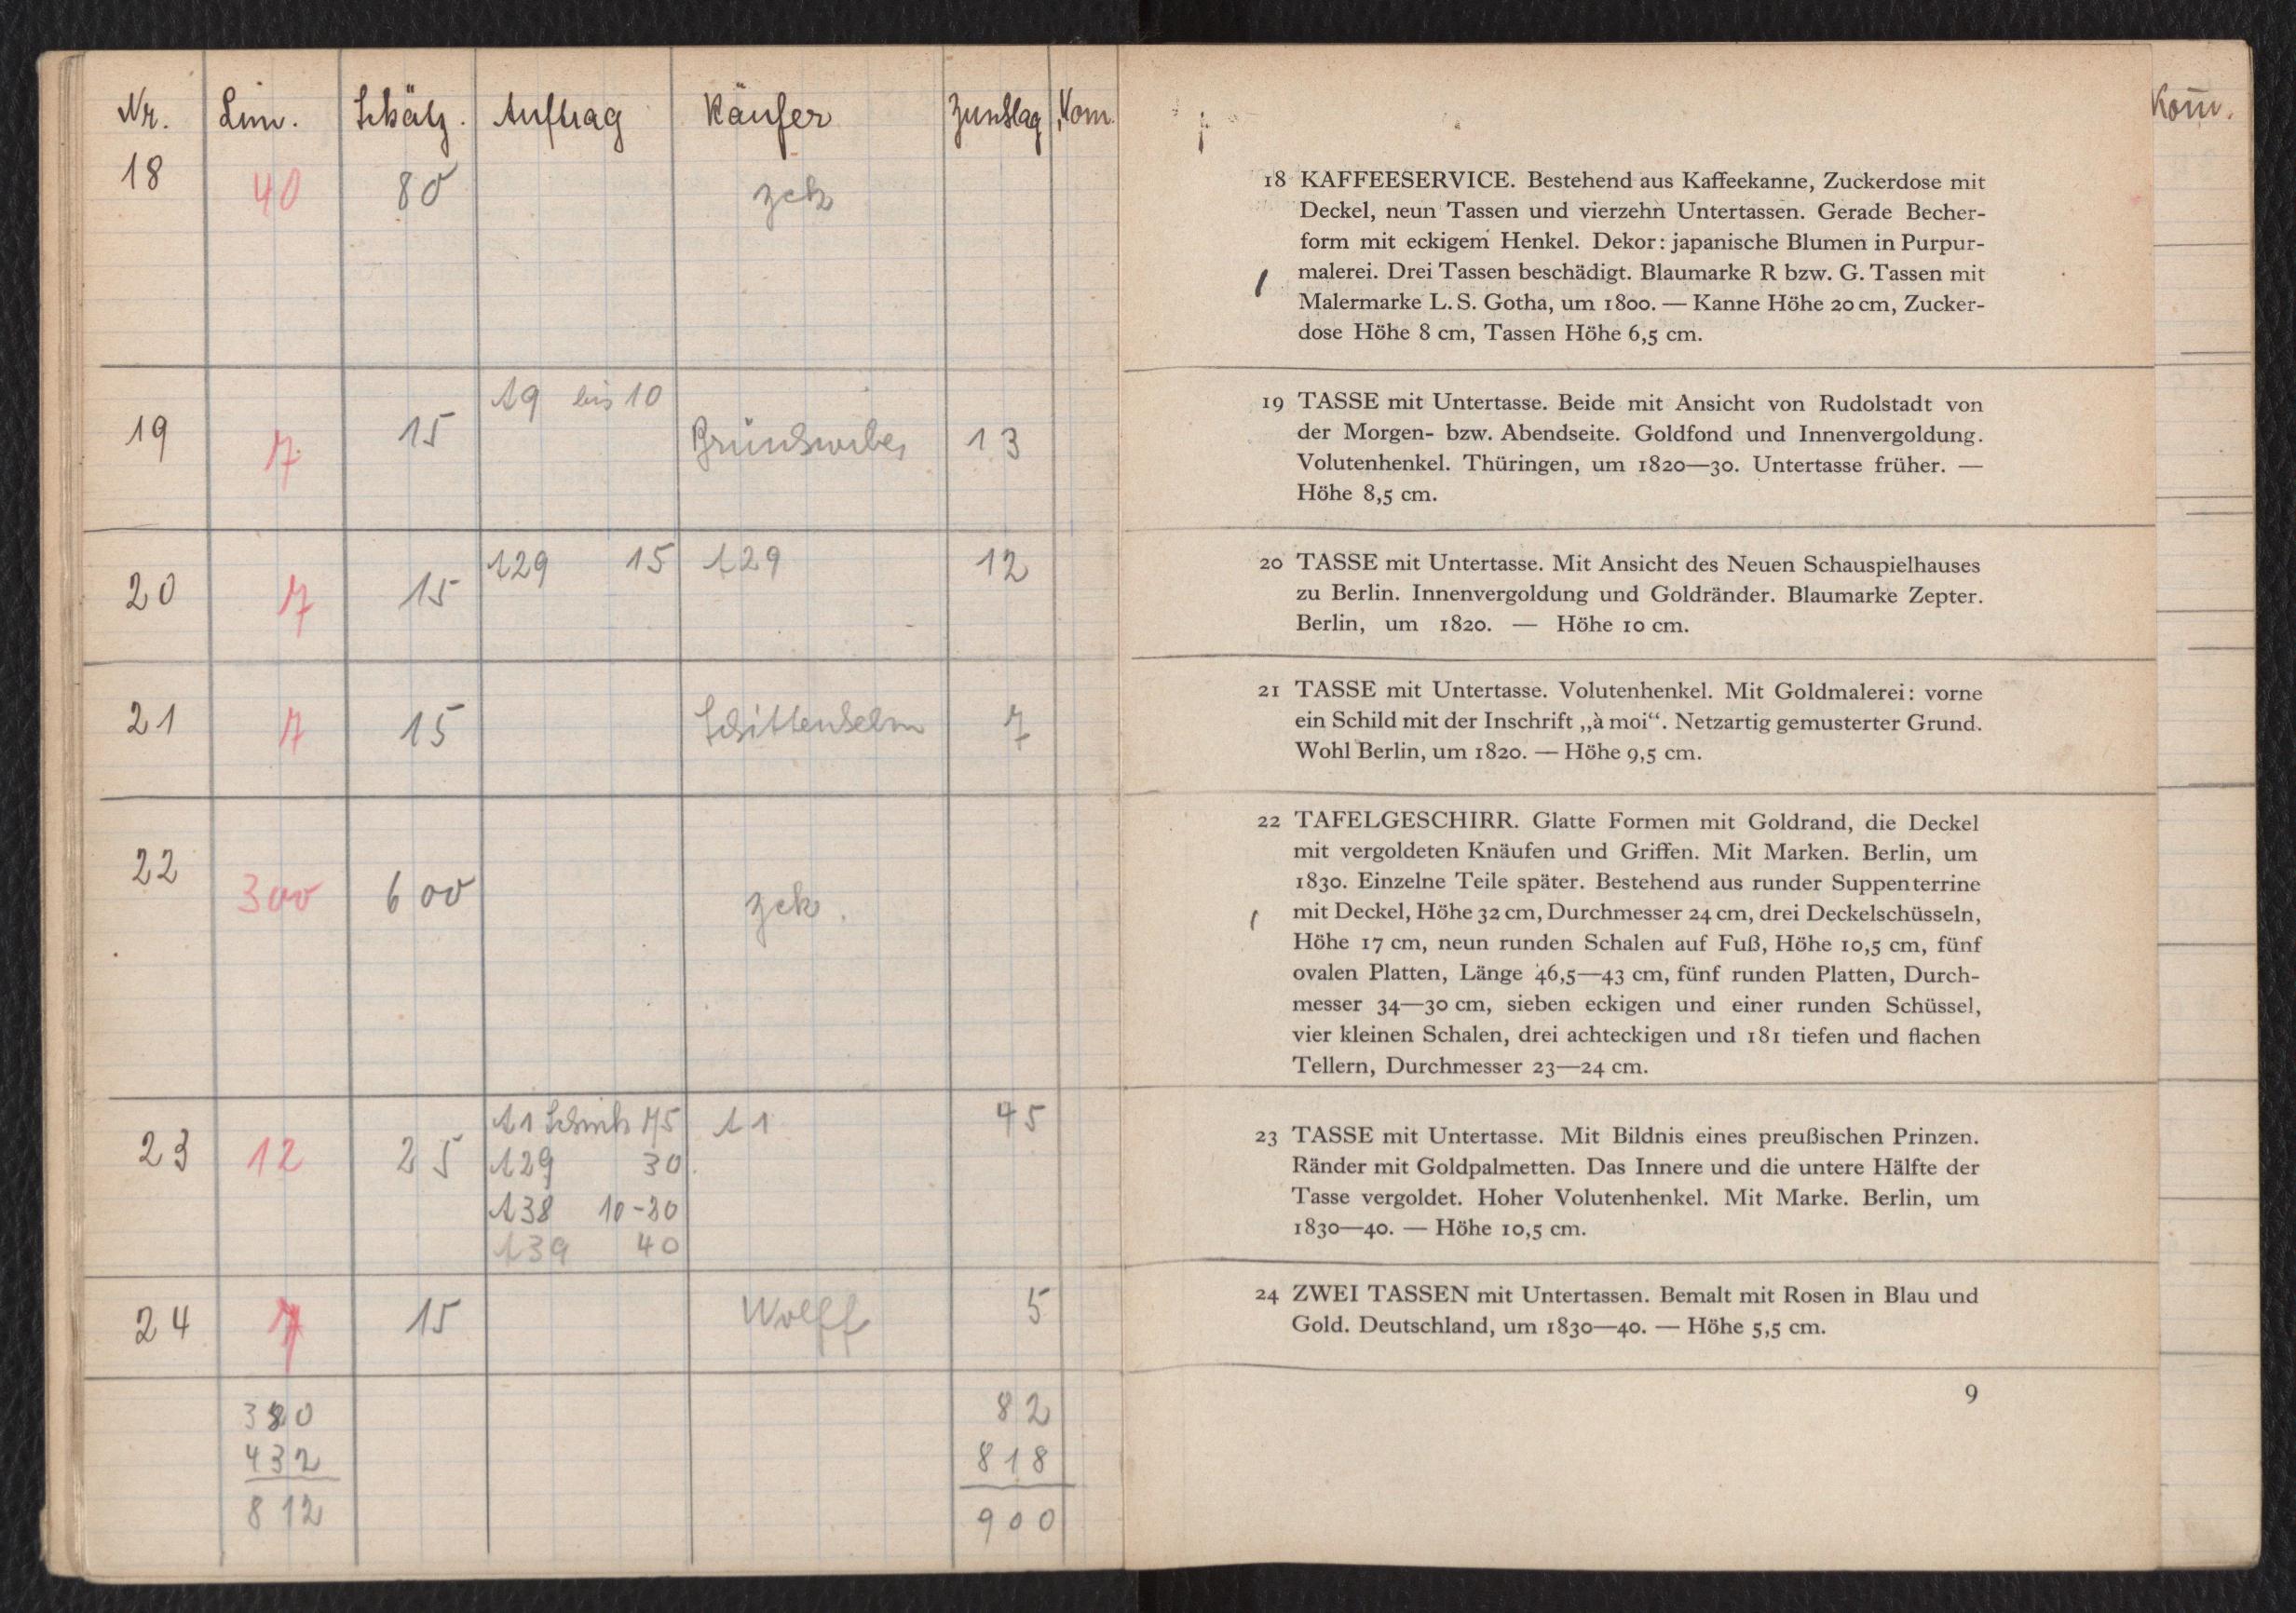 Nr. Lim. Schätz. Auftrag Käufer Zuschlag Kom.
18 40 80 zck
19 7 15 A9 bis 10 13
20 7 15 A29 15 A29 12
21 7 15 Schittenhelm 7
22 300 600 zck.
23 12 25 A1 75 A1 45
A29 30
A38 10-20
A39 40
24 7 15 Wolff 5
380 82
432 818
812 900
Kom̄.
18 KAFFEESERVICE. Bestehend aus Kaffeekanne, Zuckerdose mit
Deckel, neun Tassen und vierzehn Untertassen. Gerade Becher-
form mit eckigem Henkel. Dekor: japanische Blumen in Purpur-
malerei. Drei Tassen beschädigt. Blaumarke R bzw. G. Tassen mit
Malermarke L. S. Gotha, um 1800. — Kanne Höhe 20 cm, Zucker-
dose Höhe 8 cm, Tassen Höhe 6,5 cm.
19 TASSE mit Untertasse. Beide mit Ansicht von Rudolstadt von
der Morgen- bzw. Abendseite. Goldfond und Innenvergoldung.
Volutenhenkel. Thüringen, um 1820—30. Untertasse früher. —
Höhe 8,5 cm.
20 TASSE mit Untertasse. Mit Ansicht des Neuen Schauspielhauses
zu Berlin. Innenvergoldung und Goldränder. Blaumarke Zepter.
Berlin, um 1820. — Höhe 10 cm.
21 TASSE mit Untertasse. Volutenhenkel. Mit Goldmalerei: vorne
ein Schild mit der Inschrift „à moi“. Netzartig gemusterter Grund.
Wohl Berlin, um 1820. — Höhe 9,5 cm.
22 TAFELGESCHIRR. Glatte Formen mit Goldrand, die Deckel
mit vergoldeten Knäufen und Griffen. Mit Marken. Berlin, um
1830. Einzelne Teile später. Bestehend aus runder Suppenterrine
mit Deckel, Höhe 32 cm, Durchmesser 24 cm, drei Deckelschüsseln,
Höhe 17 cm, neun runden Schalen auf Fuß, Höhe 10,5 cm, fünf
ovalen Platten, Länge 46,5—43 cm, fünf runden Platten, Durch-
messer 34—30 cm, sieben eckigen und einer runden Schüssel,
vier kleinen Schalen, drei achteckigen und 181 tiefen und flachen
Tellern, Durchmesser 23—24 cm.
23 TASSE mit Untertasse. Mit Bildnis eines preußischen Prinzen.
Ränder mit Goldpalmetten. Das Innere und die untere Hälfte der
Tasse vergoldet. Hoher Volutenhenkel. Mit Marke. Berlin, um
1830—40. — Höhe 10,5 cm.
24 ZWEI TASSEN mit Untertassen. Bemalt mit Rosen in Blau und
Gold. Deutschland, um 1830—40. — Höhe 5,5 cm.
9